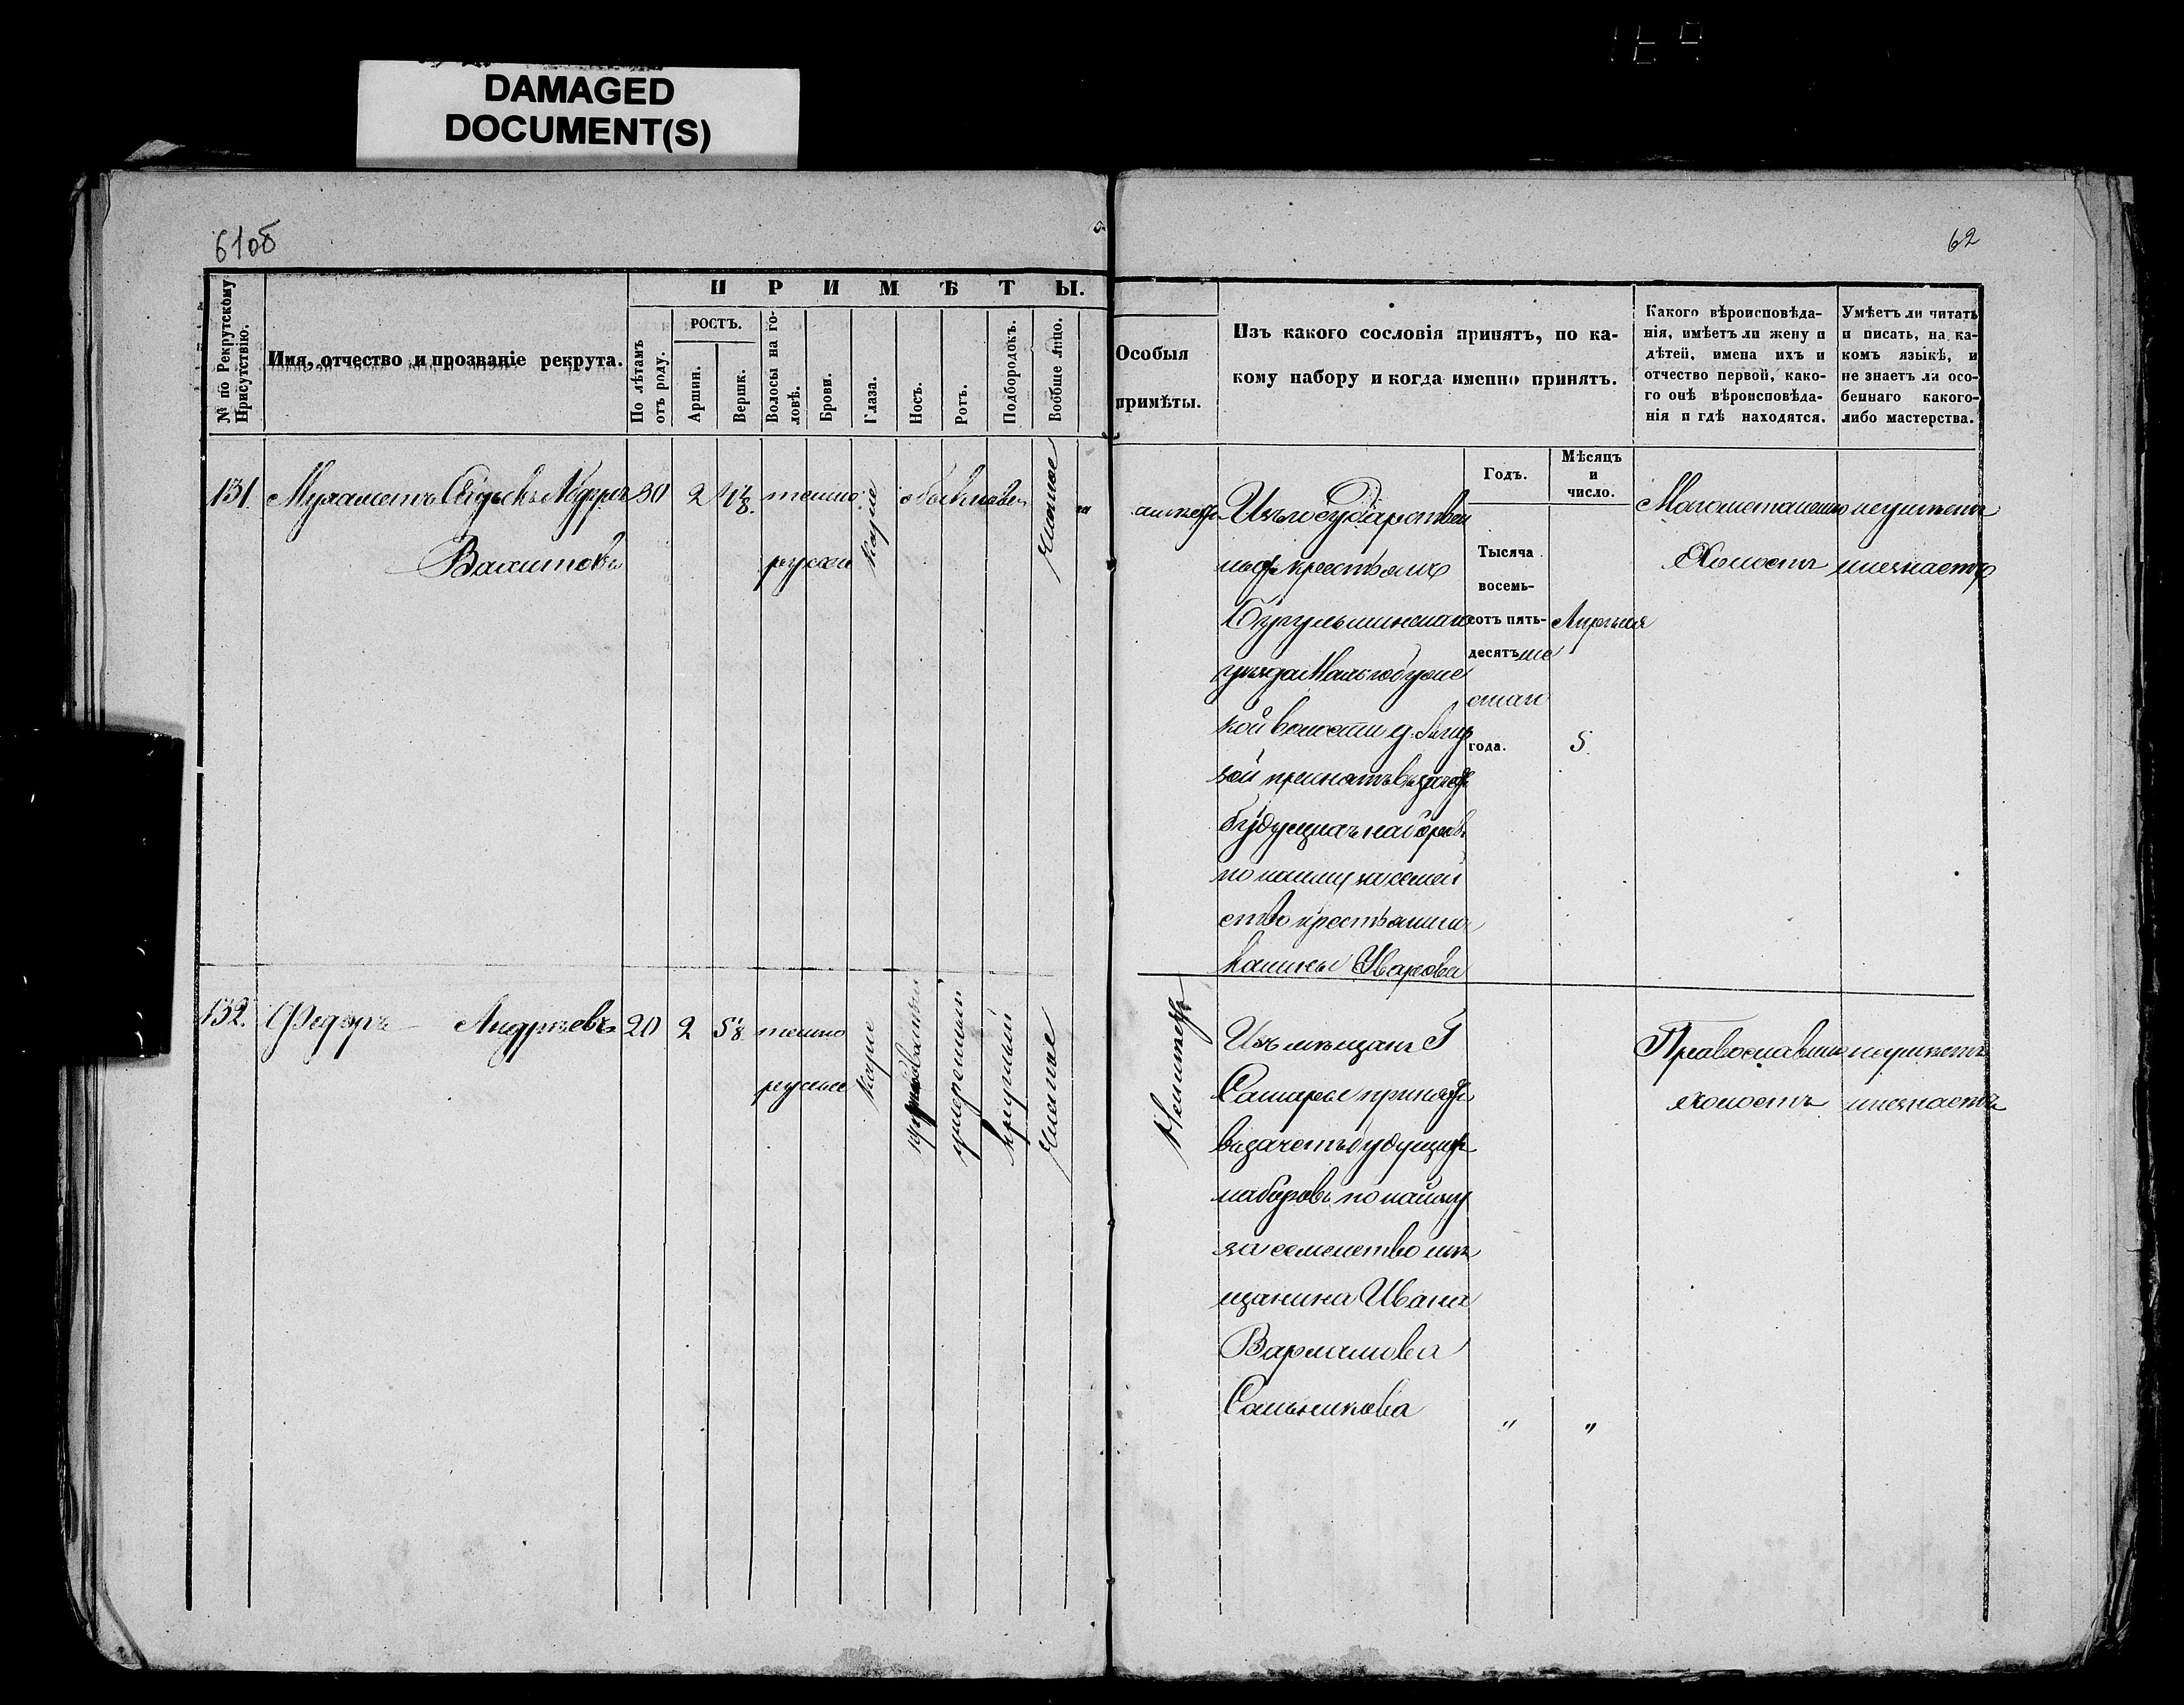 DAMAGED
DOCUMENT(S)
61об
62
№ по Рекрутскому Присутствію.
Имя, отчество и прозваніе рекрута.
ПРИМѢТЫ.
По лѣтамъ отъ роду.
РОСТЪ.
Аршин.
Вершк.
Волосы на головѣ.
Брови.
Глаза.
Носъ.
Ротъ.
Подбородокъ.
Вообще лицо.
Особыя
примѣты.
Изъ какого сословія принятъ, по ка-
кому набору и когда именно принятъ.
Какого вѣроисповѣда-
нія, имѣетъ ли жену и
дѣтей, имена ихъ и
отчество первой, како-
го онѣ вѣроисповѣда-
нія и гдѣ находятся.
Умѣетъ ли читать
и писать, на ка-
комъ языкѣ, и
не знаетъ ли осо-
беннаго какого-
либо мастерства.
Годъ.
Мѣсяцъ
и
число.
131. Мухаметъ
Вахитовъ
20 2
темно
русые
карие
чистое
Изъ государствен
ныхъ крестьянъ
Бугульминскаго
уѣзда
кой волости д.
будущихъ наборовъ
по найму за семей
ство крестьянина
Уварова
Тысяча
восемь-
сотъ пять-
десятъ ше
стаго
года.
Апрѣля
5.
Магометанскаго
Холостъ
неумѣетъ
инезнаетъ
132. Федоръ Андреевъ 20 2 5⅛
темно
русые
карие
умеренный
круглый
чистое
Неимѣетъ
Изъ мѣщанъ Г
Самары принятъ
взачетъ будущихъ
наборовъ по найму
за семейство мѣ
щанина Ивана
Варламова
Сальникова
" "
Православнаго
холостъ
неумѣетъ
инезнаетъ